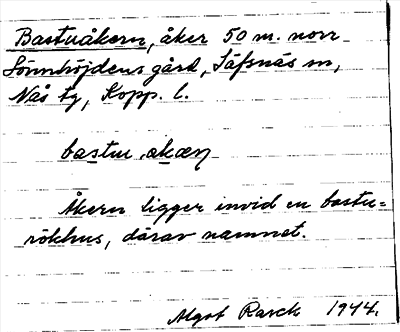 Bastuåkern, åker 50 m. norr
Lönnhöjdens gård, Säfsnäs sn,
Nås tg, Kopp. l.
bastu åkæɳ
Åkern ligger invid en bastu=
rökhus, därav namnet.
Mgot Rasck 1944.